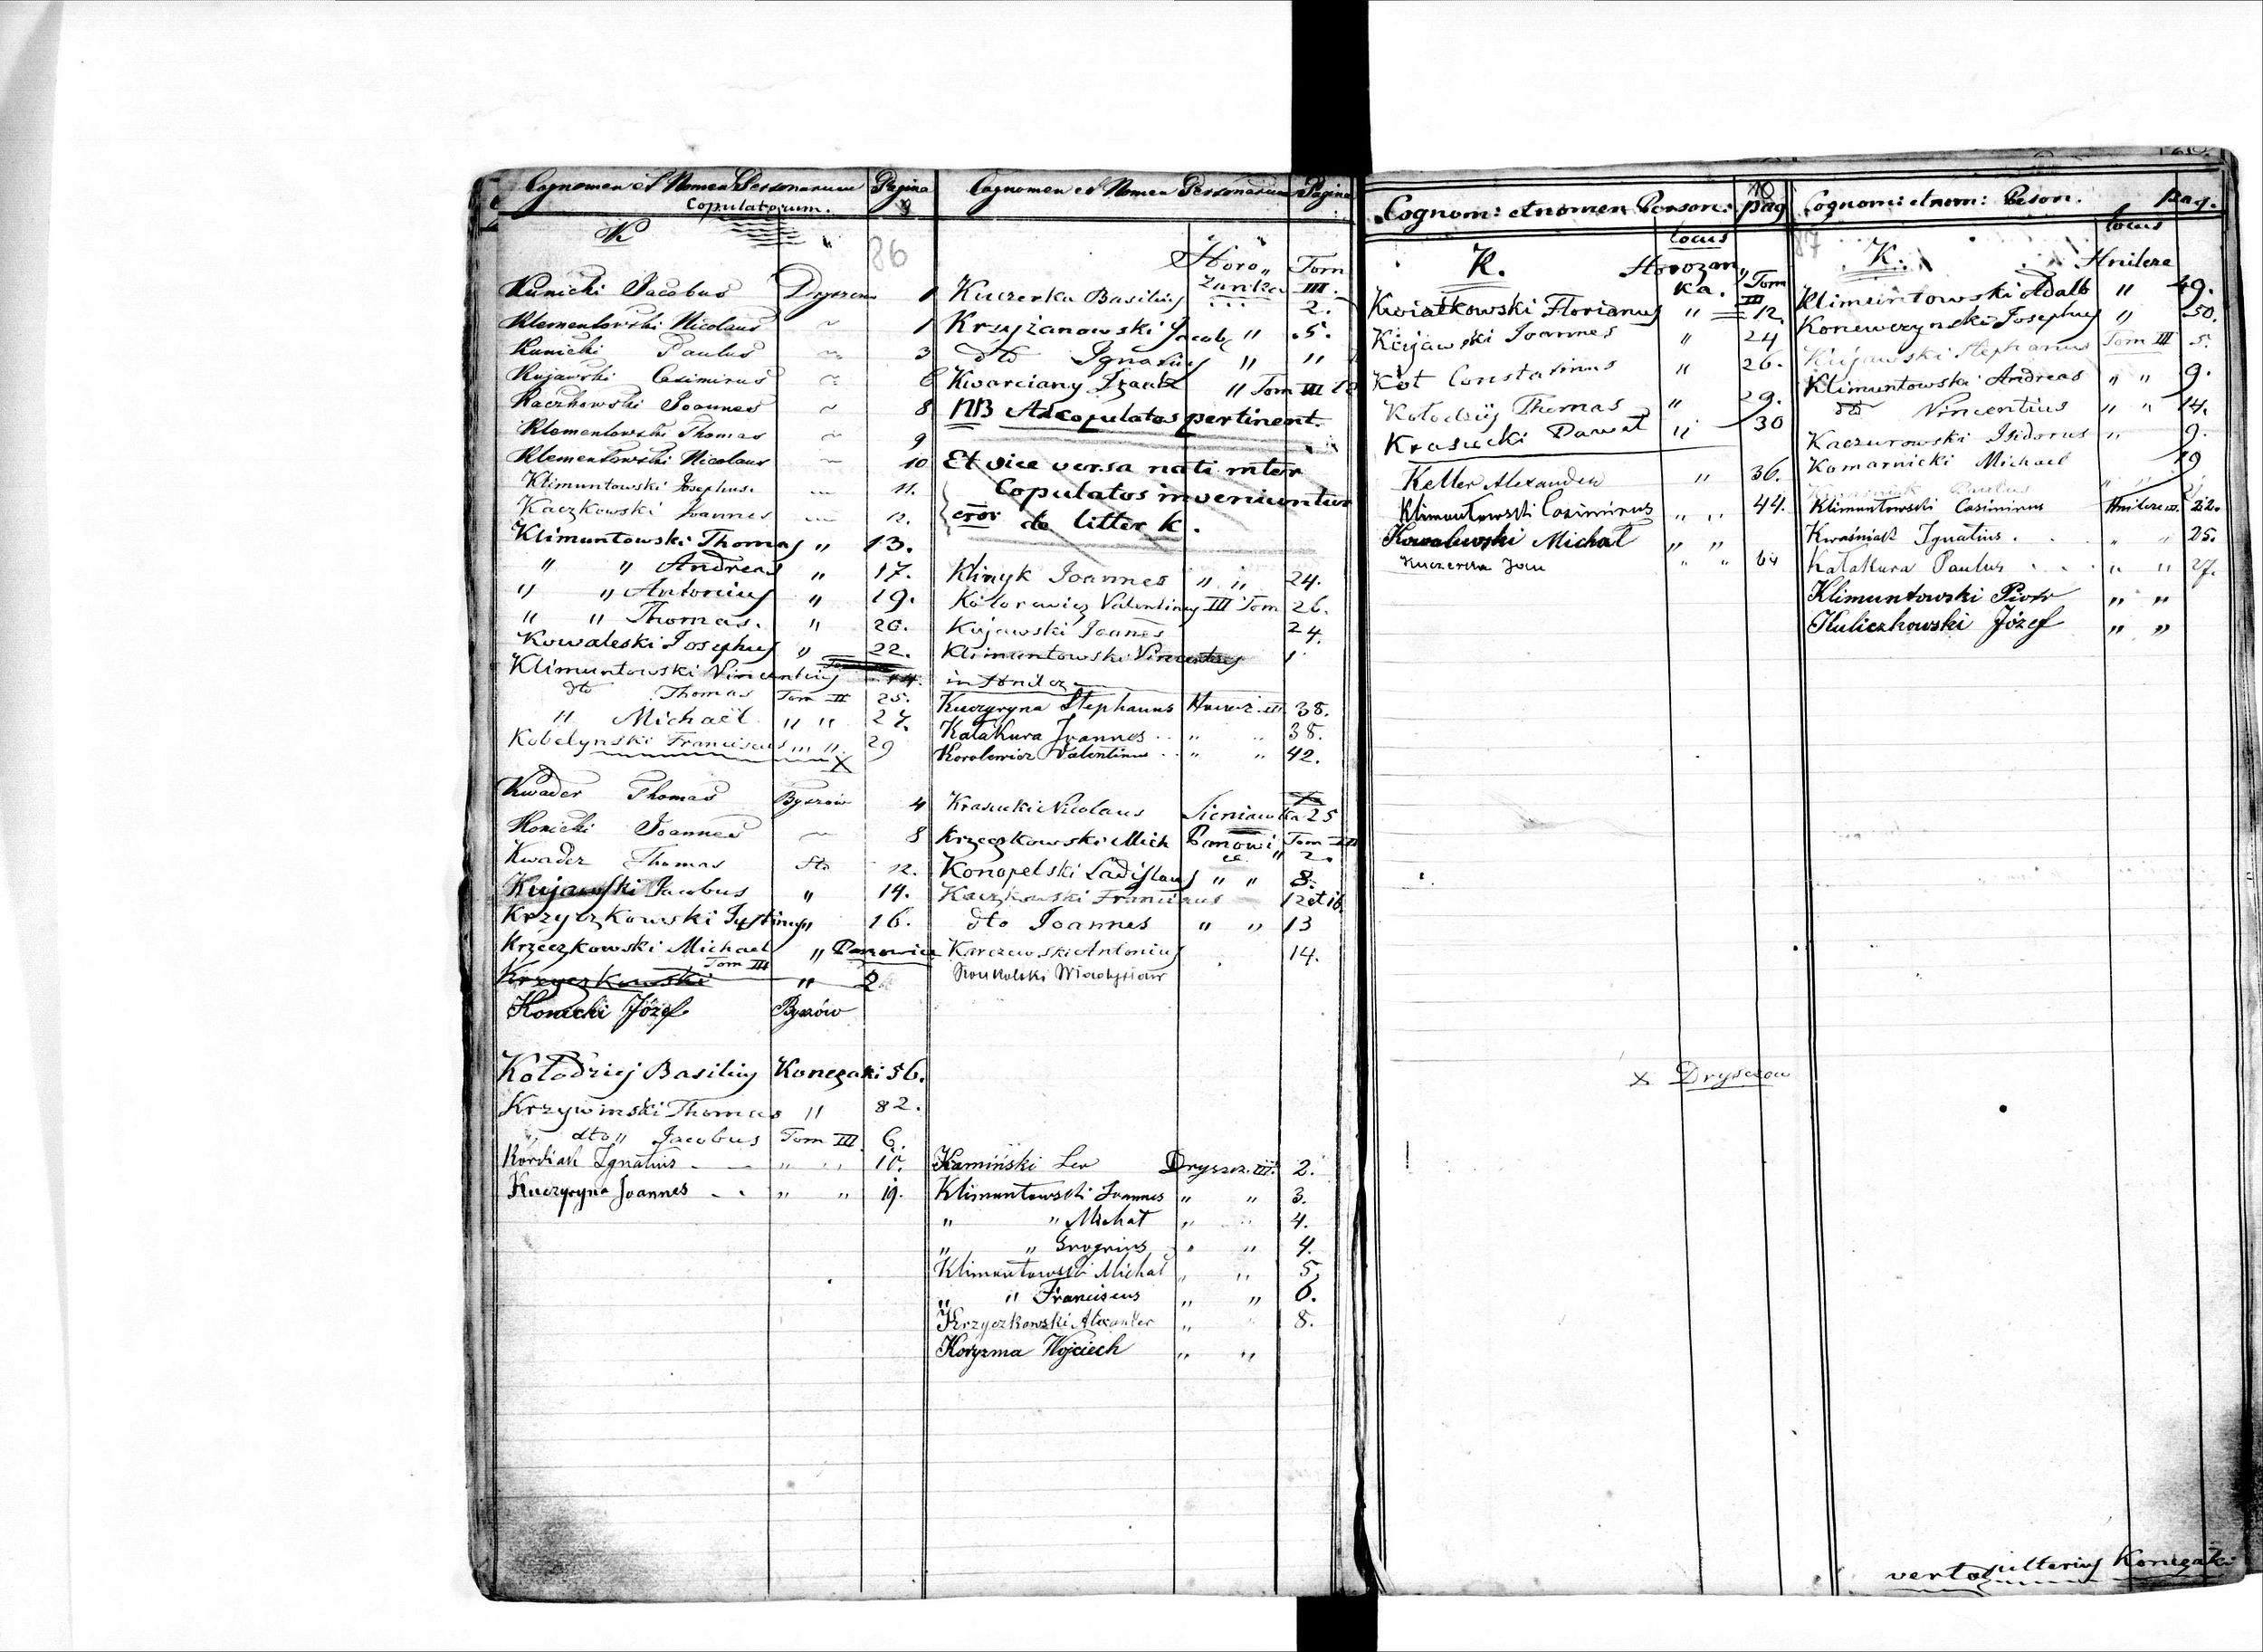 Cognomen et Nomen Personarum Pagina
Copulatorum. 9
K
86
Kunicki Jacobus Dryszczow 1
Klementowski Nicolaus ~ 1
Kunicki Paulus ~ 3
Kujawski Casimirus ~ 6
Kaczkowski Joannes ~ 8
Klementowski Thomas ~ 9
Klementowski Nicolaus ~ 10
Klimuntowski Josephus. 11.
Kaczkowski Joannes 12.
Klimuntowski Thomas " 13.
" " Andreas " 17.
" " Antonius " 19.
" " Thomas. " 20.
Kowaleski Josephus " 22.
Klimuntowski Vincentius 14.
dto Thomas Tom II 25.
" Michaël " " 27.
Kobelynski Franciscus " " 29
X
Kwader Thomas Byszów 4
Konicki Joannes ~ 8
Kwader Thomas dto 12.
Kujawski Jacobus " 14.
Krzyczkowski Justinus " 16.
Krzeczkowski Michael " Panowice
Tom III
Krzyczkowski " 2
Konicki Józef Byszów
Kołodziej Basilius Konczaki 56.
Krzywinski Thomas " 82.
" dto " Jacobus Tom III 6.
Kordiak Ignatius " " 10.
Kuczyryna Joannes " " 19.
Cognomen et Nomen Personarum Pagina
Horo" Tom
żanka III.
Kuczerka Basilius 2.
Krzyżanowski Jacob " 5.
dto Ignatius " "
Kwarciany Ignatz " Tom III
NB Ad copulatos pertinent.
Et vice versa nati inter
Copulatos inveniuntur
error de litter K.
Klinyk Joannes " " 24.
Kolorewicz Valentinus III Tom 26.
Kujawski Joannes 24.
Klimuntowski Vincentius 1
in Hnilcze
Kuczyryna Stephanus III 38.
Katakura Joannes " " 38.
Korolewicz Valentinus " " 42.
Krasucki Nicolaus Sieniawka 25
Krzeczkowski Mich Panowi Tom III
ce " 2.
Konopelski Ladislaus " " 8.
Kaczkowski Franciscus 12 et 16.
dto Joannes " " 13
Karczewski Antonius 14.
Kamiński Leo Dryszcz. III. 2.
Klimuntowski Joannes " " 3.
" " Michał " " 4.
" " " " 4.
Klimuntowski Michał " " 5.
" " Franciscus " " 6.
Krzyczkowski Alexander " " 8.
Koryzma Wojciech " "
Cognom: et nomen Person: pag
10
K. locus
Horozan"
ka. Tom
III
Kwiatkowski Florianus " 12.
Kujawski Joannes " 24
Kot Constatinus " 26.
Kołodzij Thomas " 29.
Krasucki Paweł " 30
Keller Alexander " 36.
Klimuntowski Casimirus " " 44.
Kowalewski Michał " "
Kuczerka Jan " " 64
X Dryszczow
Cognom: et nom: Peson. pag.
87
K. locus
Hnilcze
Klimuntowski Adalb " 49.
Konewczynski Josephus " 50.
Kujawski Stephanus Tom III 5.
Klimuntowski Andreas " " 9.
dto Vincentius " " 14.
Kaczurowski Isidorus " 9.
Komarnicki Michael 19
Paulus " "
Klimuntowski Casimirus Hnilcze III. 22.
Kwaśniak Ignatius " " 25.
Katakura Paulus " " 27.
Klimuntowski Piotr " "
Kuliczkowski Józef " "
verta ulterius Konczaki